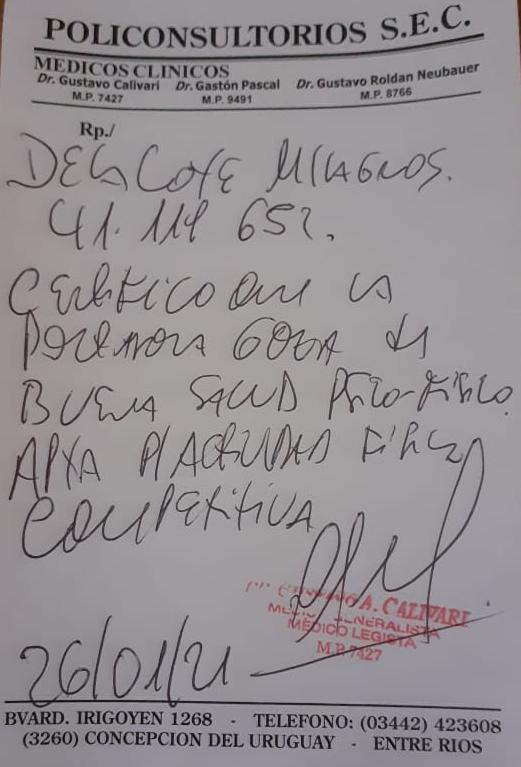 POLICONSULTORIOS S.E.C.
MEDICOS CLINICOS
Dr. Gustavo Calivari Dr. Gastón Pascal Dr. Gustavo Roldan Neubauer
M.P. 7427 M.P. 9491 M.P. 8766
Rp./
MILAGROS.
CERTIFICO QUE LA
GOZA DE
BUENA SALUD PSICO-FISICA
APTA P/ACTIVIDAD FISICA
COMPETITIVA
A. CALIVARI
GENERALISTA
MÉDICO LEGISTA
M.P. 7427
26/01/21
BVARD. IRIGOYEN 1268 - TELEFONO: (03442) 423608
(3260) CONCEPCION DEL URUGUAY - ENTRE RIOS